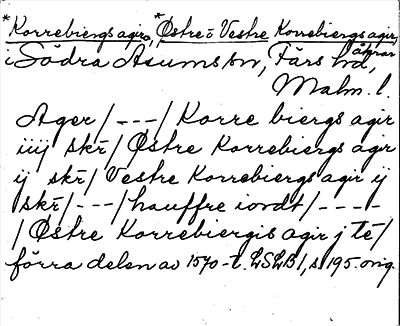 *Korrebiergs agir, *Østre o Vestre Korrebiergs agir, åkrar
i Södra Åsums sn, Färs hd,
Malm. l.
Ager/---/ Korre biergs agir
iiij skr̄/ Østre Korrebiergs agir
ij skr̄/ Vestre Korrebiergs agir ij
skr̄/---/hauffre iordt/----
/ Østre Korrebiergis agir j te/
förra delen av 1570-t. LSLB 1, s. 195. orig.